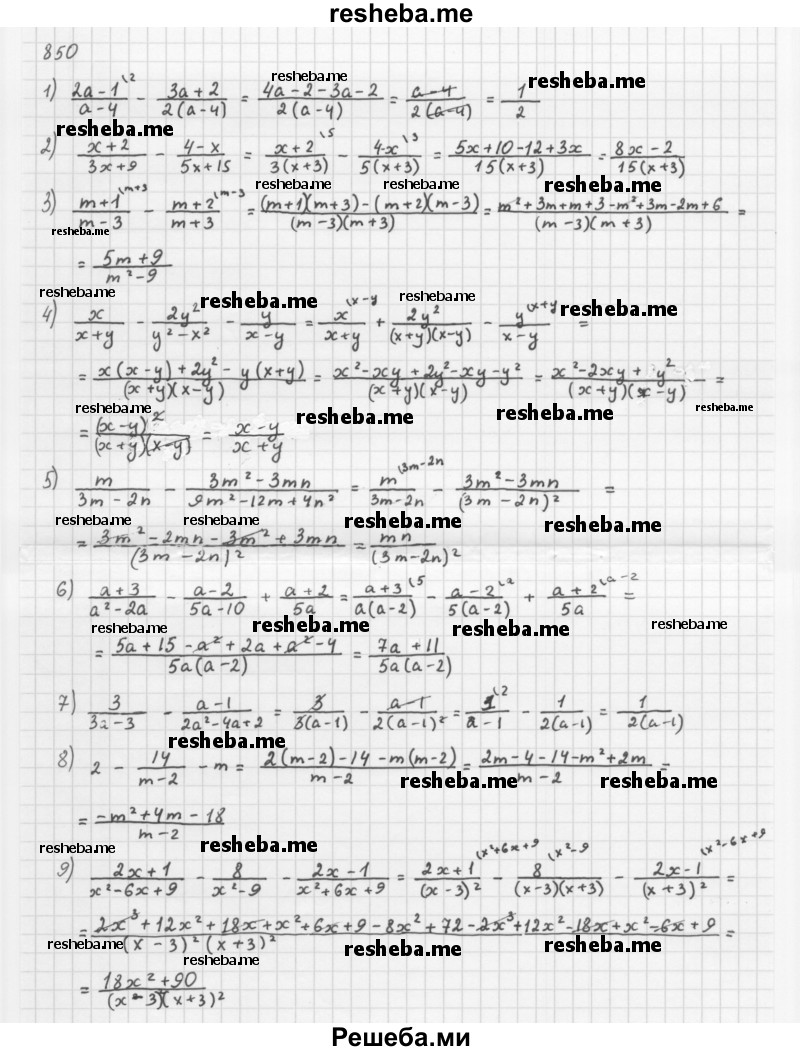 resheba.me
850
resheba.me resheba.me
1) (2a-1^{\2})/(a-4) - (3a+2)/(2(a-4)) = (4a-2-3a-2)/(2(a-4)) = (a-4)/(2(a-4)) = 1/2
resheba.me
2) (x+2)/(3x+9) - (4-x)/(5x+15) = (x+2^{\5})/(3(x+3)) - (4-x^{\3})/(5(x+3)) = (5x+10-12+3x)/(15(x+3)) = (8x-2)/(15(x+3))
resheba.me resheba.me
3) (m+1^{\m+3})/(m-3) - (m+2^{\m-3})/(m+3) = ((m+1)(m+3)-(m+2)(m-3))/((m-3)(m+3)) = (m²+3m+m+3-m²+3m-2m+6)/((m-3)(m+3)) =
resheba.me
= (5m+9)/(m²-9)
resheba.me resheba.me resheba.me resheba.me
4) x/(x+y) - 2y²/(y²-x²) - y/(x-y) = x^{\x-y}/(x+y) + 2y²/((x+y)(x-y)) - y^{\x+y}/(x-y) =
= (x(x-y)+2y²-y(x+y))/((x+y)(x-y)) = (x²-xy+2y²-xy-y²)/((x+y)(x-y)) = (x²-2xy+y²)/((x+y)(x-y)) =
resheba.me resheba.me resheba.me resheba.me
= (x-y)²/((x+y)(x-y)) = (x-y)/(x+y)
5) m/(3m-2n) - (3m²-3mn)/(9m²-12m+4n²) = m^{\3m-2n}/(3m-2n) - (3m²-3mn)/((3m-2n)²) =
resheba.me resheba.me resheba.me resheba.me
= (3m²-2mn-3m²+3mn)/((3m-2n)²) = mn/((3m-2n)²)
6) (a+3)/(a²-2a) - (a-2)/(5a-10) + (a+2)/(5a) = (a+3^{\5})/(a(a-2)) - (a-2^{\a})/(5(a-2)) + (a+2^{\a-2})/(5a) =
resheba.me resheba.me resheba.me resheba.me
= (5a+15-a²+2a+a²-4)/(5a(a-2)) = (7a+11)/(5a(a-2))
7) 3/(3a-3) - (a-1)/(2a²-4a+2) = 3/(3(a-1)) - (a-1)/(2(a-1)²) = 1^{\2}/(a-1) - 1/(2(a-1)) = 1/(2(a-1))
resheba.me
8) 2 - 14/(m-2) - m = (2(m-2)-14-m(m-2))/(m-2) = (2m-4-14-m²+2m)/(m-2) =
resheba.me resheba.me
= (-m²+4m-18)/(m-2)
resheba.me resheba.me
9) (2x+1)/(x²-6x+9) - 8/(x²-9) - (2x-1)/(x²+6x+9) = (2x+1^{\x²+6x+9})/((x-3)²) - 8^{\x²-9}/((x-3)(x+3)) - (2x-1^{\x²-6x+9})/((x+3)²) =
= (2x³+12x²+18x+x²+6x+9-8x²+72-2x³+12x²-18x+x²-6x+9)/((x-3)²(x+3)²) =
resheba.me resheba.me resheba.me
= (18x²+90)/((x-3)²(x+3)²)
Решеба.ми